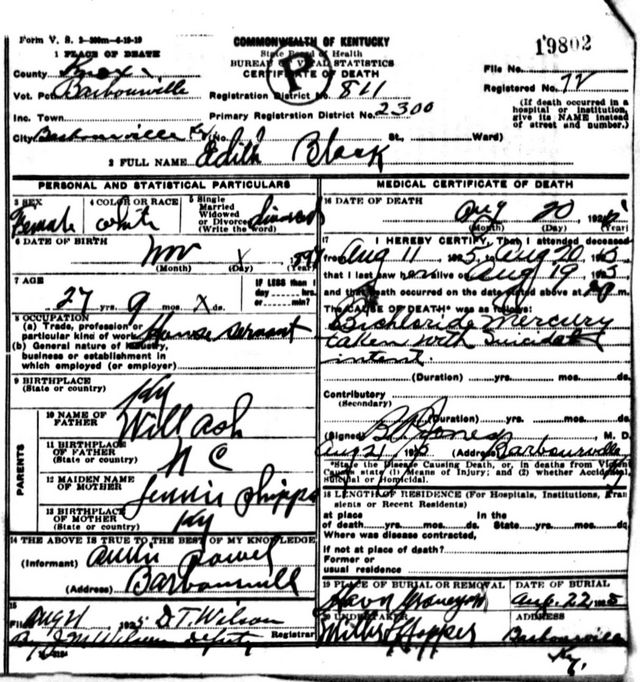 Form V. S. 2-200m-4-19-19
COMMONWEALTH OF KENTUCKY
State Board of Health
BUREAU OF VITAL STATISTICS
CERTIFICATE OF DEATH
R
19802
1 PLACE OF DEATH
County Knox
Vot. Pct. Barbourville
Inc. Town
City Barbourville Ky (No. St., Ward)
Registration District No. 811
Primary Registration District No. 2300
File No.
Registered No. 72
(If death occurred in a hospital or institution, give its NAME instead of street and number.)
2 FULL NAME Edith Black
PERSONAL AND STATISTICAL PARTICULARS
3 SEX Female
4 COLOR OR RACE white
5 Single Married Widowed or Divorced (Write the word) divorced
6 DATE OF BIRTH
Nov X
(Month) (Day) (Year)
7 AGE
27 yrs. 9 mos. X ds.
IF LESS than 1 day hrs. or min?
8 OCCUPATION
(a) Trade, profession or particular kind of work House Servant
(b) General nature of industry, business or establishment in which employed (or employer)
9 BIRTHPLACE (State or country) Ky
PARENTS
10 NAME OF FATHER Will Ash
11 BIRTHPLACE OF FATHER (State or country) N C
12 MAIDEN NAME OF MOTHER Jennie Phipps
13 BIRTHPLACE OF MOTHER (State or country) Ky
14 THE ABOVE IS TRUE TO THE BEST OF MY KNOWLEDGE
(Informant) Powel
(Address) Barbourvill
15
Filed Aug 21 1925 D T. Wilson
Registrar
By J M Wilson Deputy
MEDICAL CERTIFICATE OF DEATH
16 DATE OF DEATH
Aug 20 1925
(Month) (Day) (Year)
17 I HEREBY CERTIFY, That I attended deceased
from Aug 11 1925, Aug 20 1925
that I last saw her alive on Aug 19 1925
and that death occurred on the date stated above at m.
The CAUSE OF DEATH* was as follows:
Bichloride Mercury
taken with suicidal
intent
(Duration) yrs. mos. ds.
Contributory
(Secondary)
(Duration) yrs. mos. ds.
(Signed) Jones M. D.
Aug 21 1925 (Address) Barbourville
*State the Disease Causing Death, or, in deaths from Violent Causes state (1) Means of Injury; and (2) whether Accidental, Suicidal or Homicidal.
18 LENGTH OF RESIDENCE (For Hospitals, Institutions, Transients or Recent Residents)
at place of death yrs. mos. ds. In the State yrs. mos. ds.
Where was disease contracted,
If not at place of death?
Former or usual residence
19 PLACE OF BURIAL OR REMOVAL
Graveyard
DATE OF BURIAL
Aug. 22 1925
20 UNDERTAKER
Hopper
ADDRESS
Barbourville
Ky.